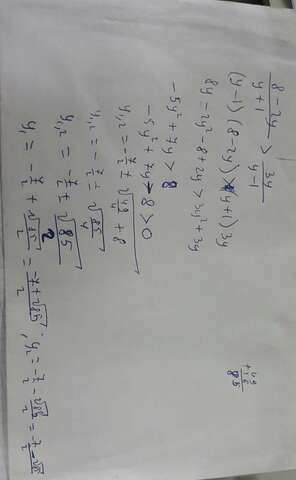 8-2y/y+1 > 3y/y-1
(y-1)(8-2y) > (y+1)3y
8y-2y²-8+2y > 3y²+3y
-5y²+7y > 8
-5y²+7y-8 > 0
y₁,₂ = -7/2 ∓ √49/4 + 8
y₁,₂ = -7/2 ∓ √85/4
y₁,₂ = -7/2 ∓ √85/2
y₁ = -7/2 + √85/2 = -7+√85/2, y₂ = -7/2 - √85/2 = -7-√85/2